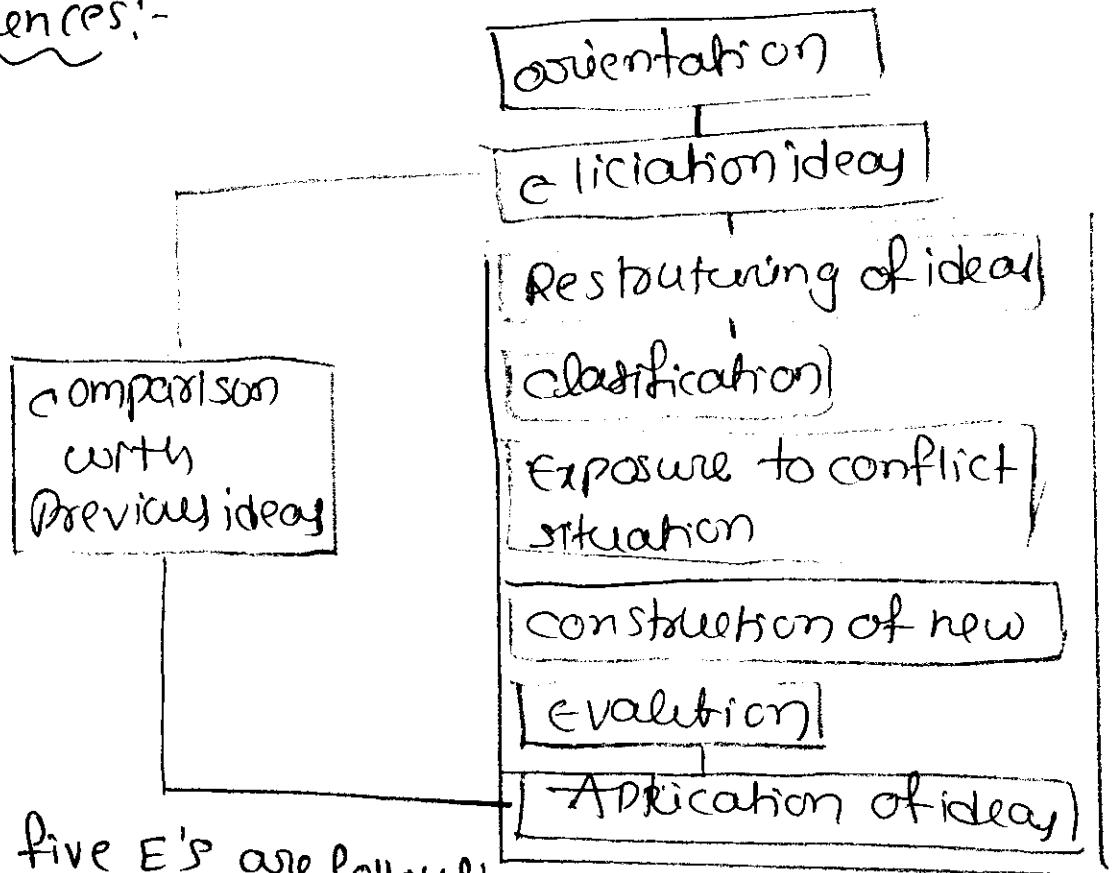 ences:-
orientation
eliciation ideas
Restouturing of ideas
clasification
Exposure to conflict
situation
construction of new
evalution
Application of ideas
comparison
with
Previous ideas
five E's are follows: